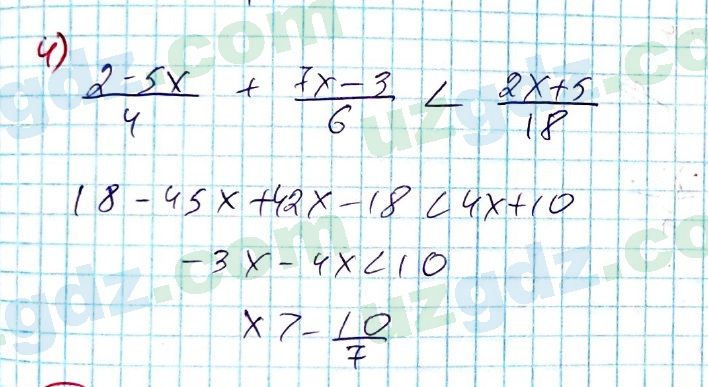 4)
(2-5x)/4 + (7x-3)/6 < (2x+5)/18
18-45x+42x-18<4x+10
-3x-4x<10
x>-10/7
uzgdz.com